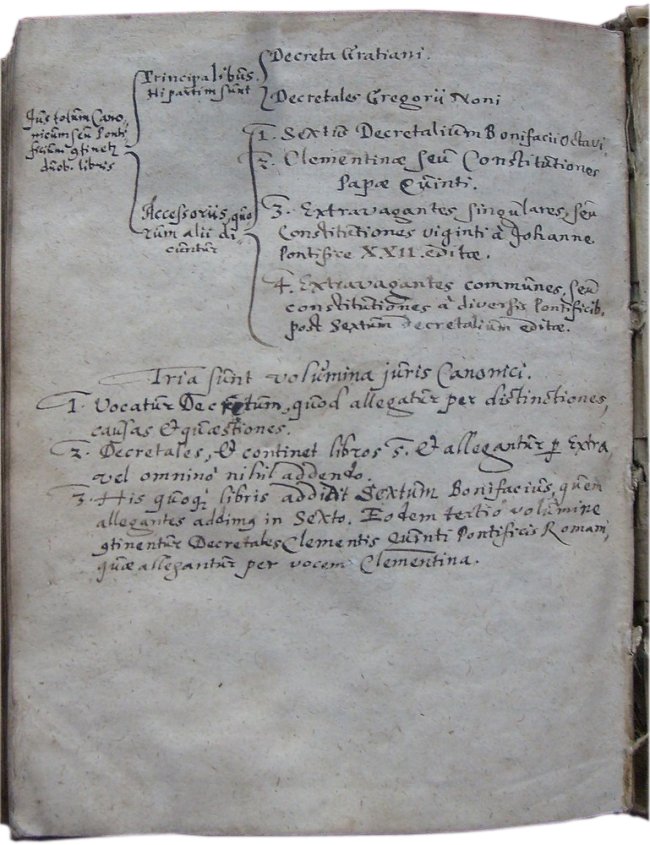 Jus totum Cano-
nicum seu Ponti
ficium gtinetz
duob. libris
Principalibus.
Hi partim sunt
Decreta Gratiani.
Decretales Gregorii Noni
Accessoriis, quo
rum alii di-
cuntur
1. Sextus Decretalium Bonifacii Octavi
2. Clementinæ seu Constitutiones
Papæ Quinti.
3. Extravagantes singulares, seu
Constitutiones viginti à Johanne
Pontifice XXII. editæ.
4. Extravagantes communes, seu
constitutiones à diversis Pontificib,
post Sextum Decretalium editæ.
Tria sunt volumina juris Canonici.
1. Vocatur Decretum, quod allegatur per distinctiones,
causas & quæstiones.
2. Decretales, & continet libros 5. & allegantur p Extra,
vel omnino nihil addendo.
3. His quoq; libris addidit Sextum Bonifacius, quem
allegantes addimg in Sexto. Eodem tertio volumine
gtinentur Decretales Clementis Quinti Pontificis Romani,
quæ allegantur per vocem Clementina.